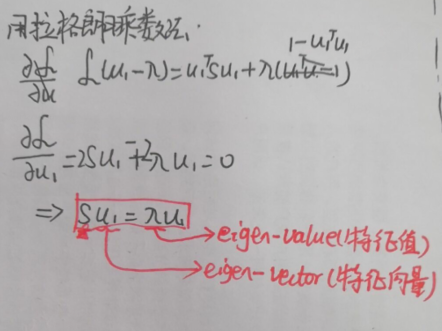 用拉格朗日乘数法.
1-u₁ᵀu₁
∂ℒ/∂u ℒ(u₁-λ)=u₁ᵀSu₁+λ(u₁ᵀu₁-1)
∂ℒ/∂u₁=2Su₁-2λu₁=0
⇒ Su₁=λu₁
eigen-value(特征值)
eigen-vector(特征向量)